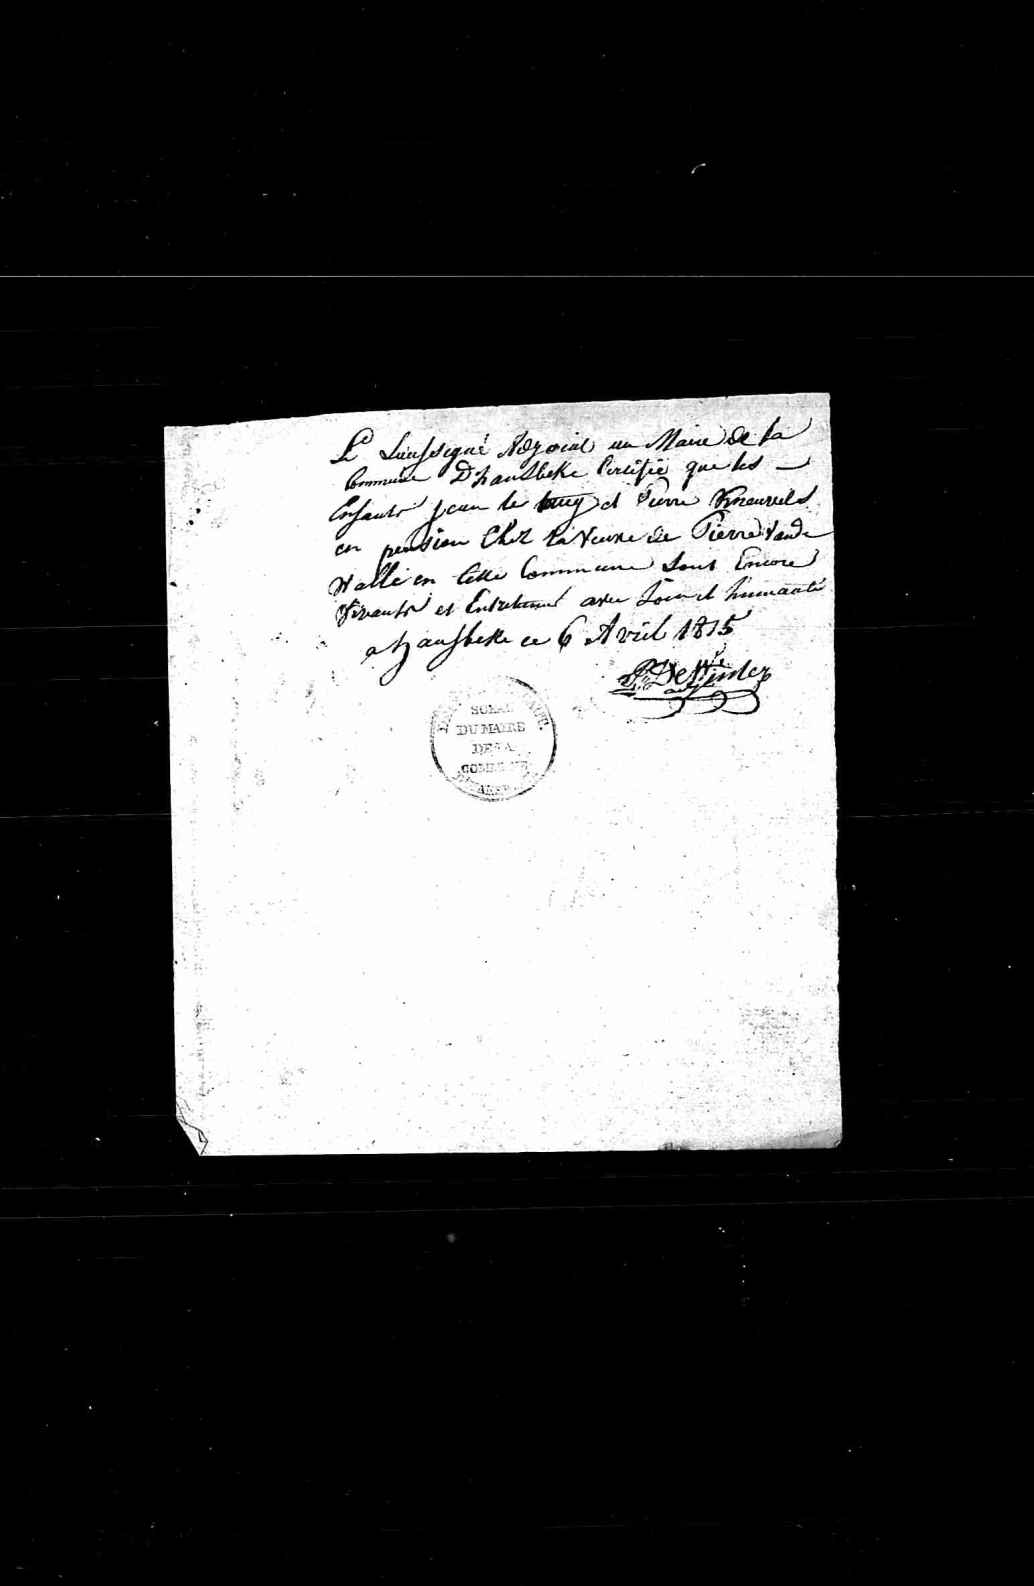 Le Soussigné Adjoint au Maire de la
Commune D'hansbeke Certifie que les —
Enfants jean le et Pierre
en pension Chez la Veuve de Pierre Vande
Walle en Cette Commune Sont Encore
Vivants et Entretenus avec Soin et humanité
a hansbeke ce 6 Avril 1815
SCEAU
DU MAIRE
DE LA
COMMUNE